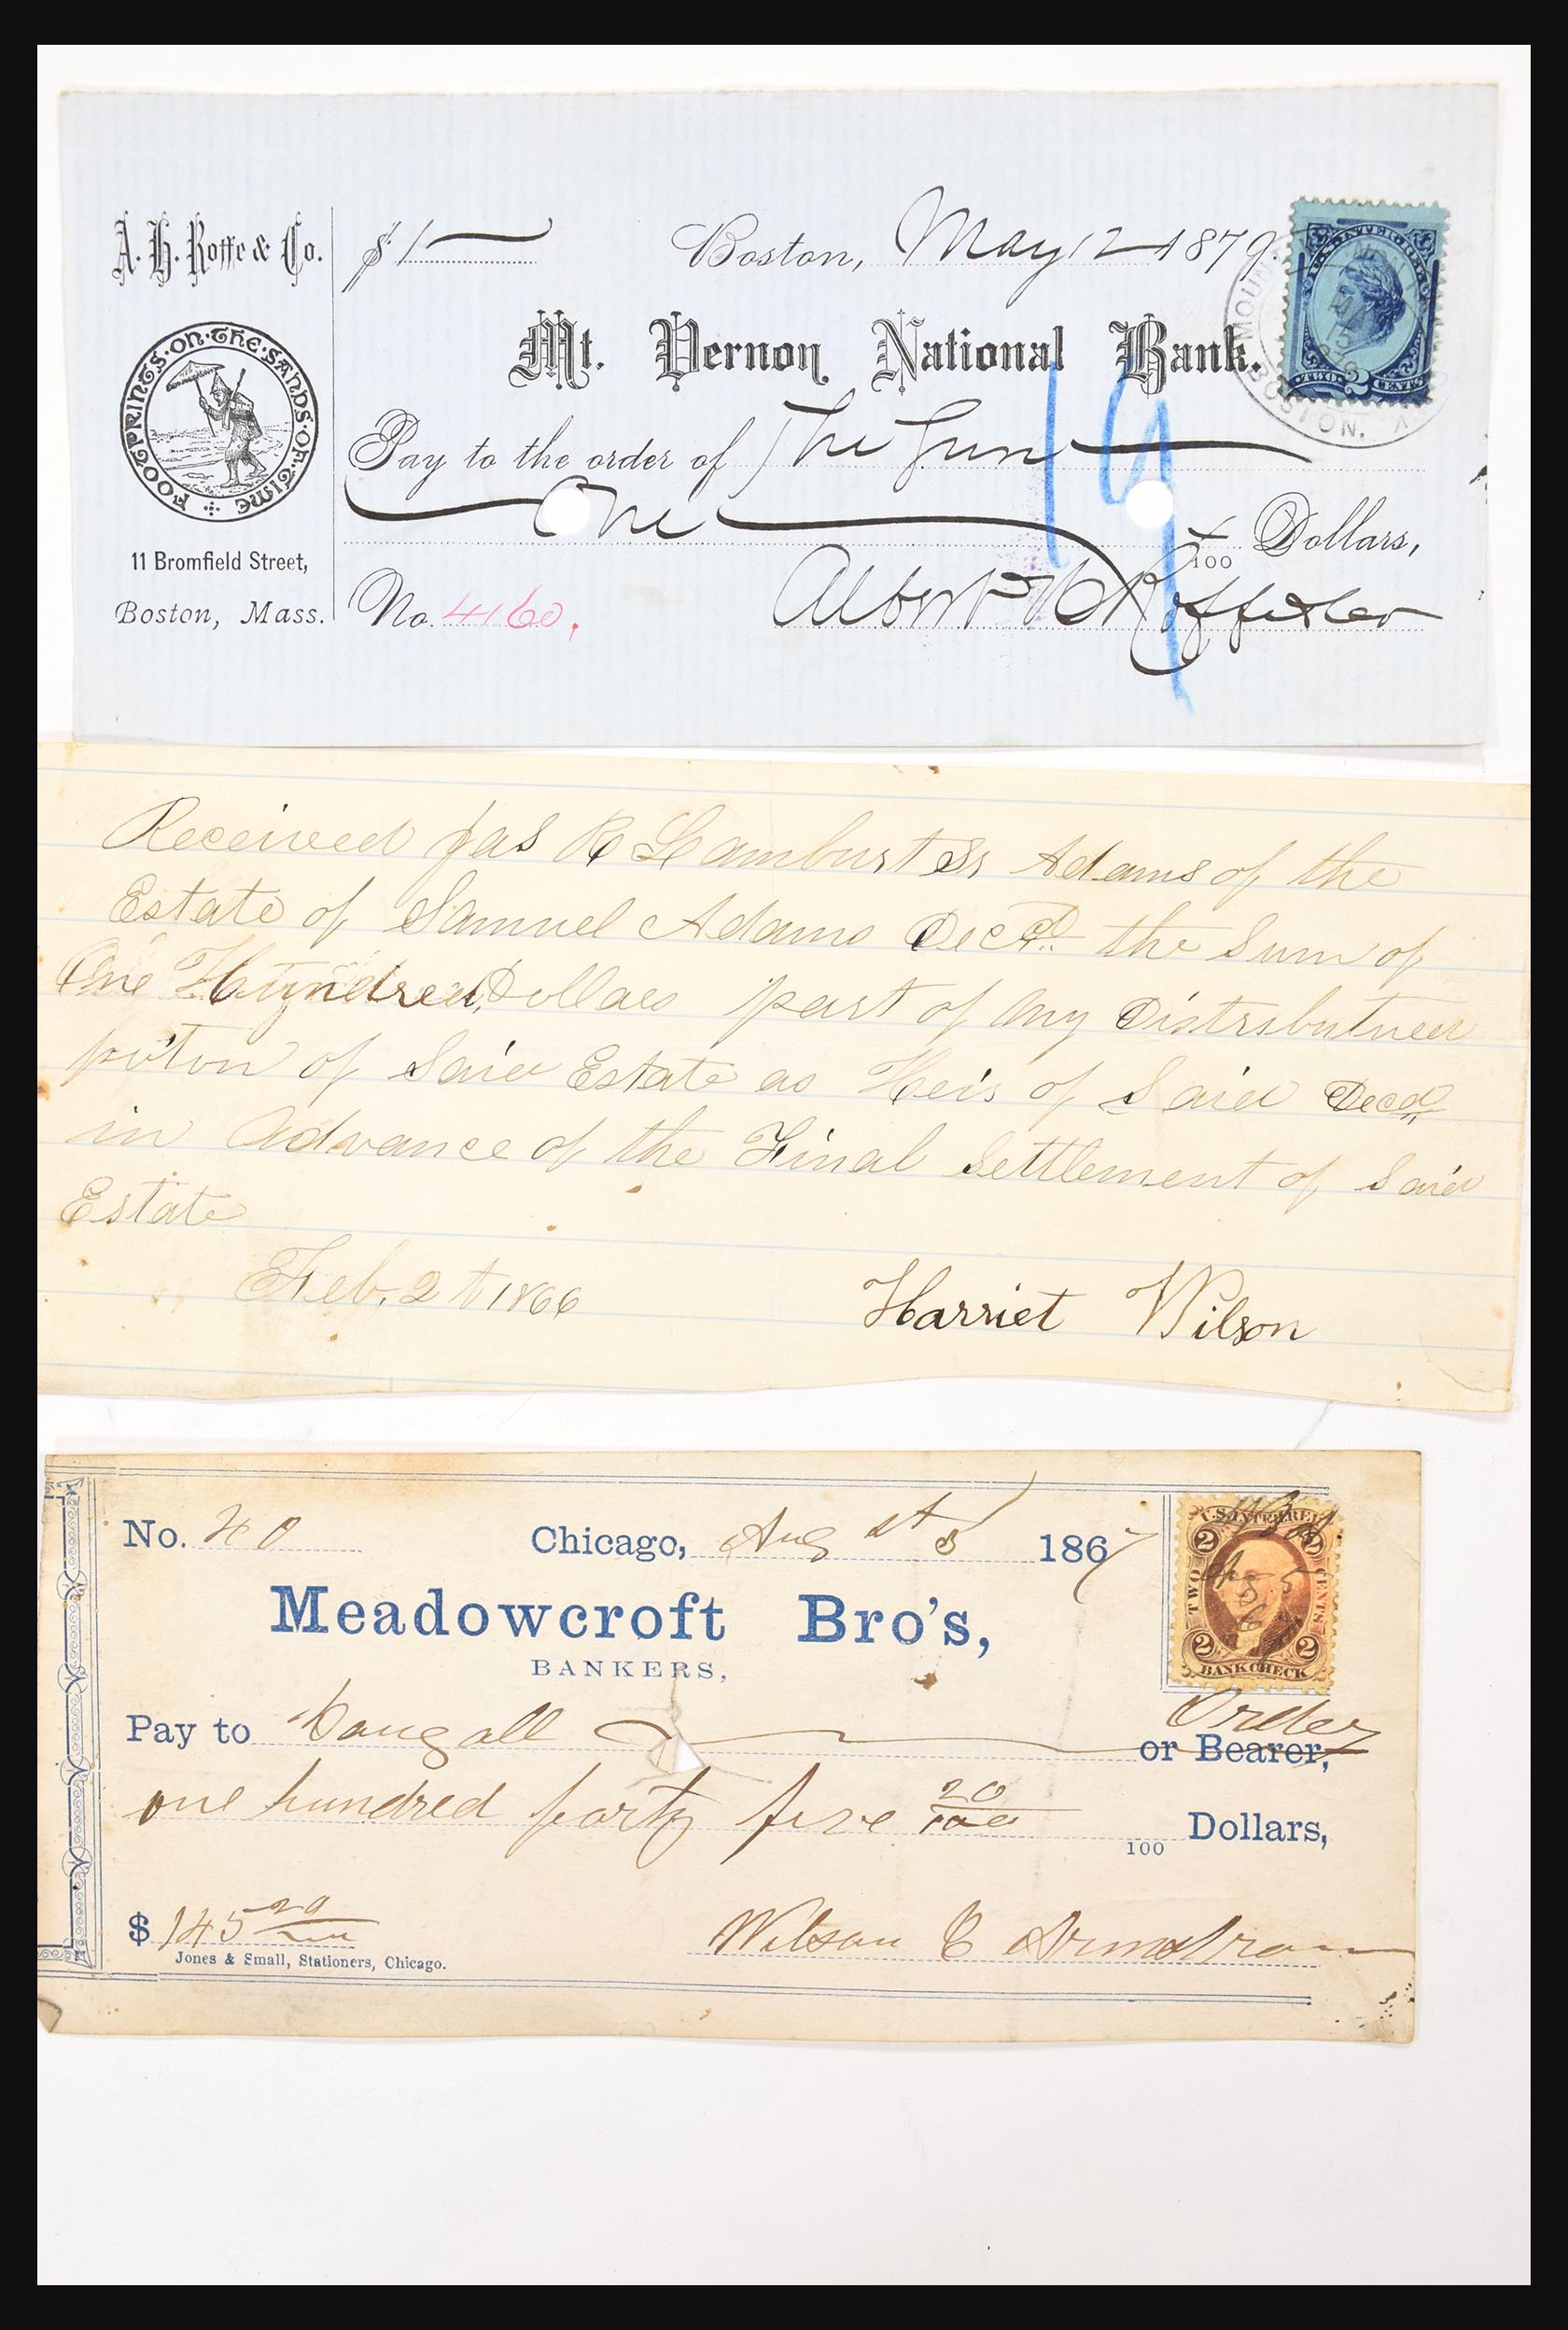 A. H. Roffe & Co.
$ 1
Boston, May 12 1879.
FOOTPRINTS·ON·THE·SANDS·OF·TIME
Mt. Vernon National Bank.
BOSTON.
TWO 2 CENTS
Pay to the order of The Sun
One
100 Dollars,
19
11 Bromfield Street,
Boston, Mass.
No. 4160.
Received Jas R Adams of the
Estate of Samuel Adams Decd. the Sum of
One Hundred Dollars part of my
of Said Estate as Heir of Said Decd
in Advance of the Final Settlement of Said
Estate
Feb. 2 1866
Harriet Wilson
No. 40
Chicago, Aug 5 1867
U.S. INTER. REV.
2 2
TWO CENTS
2 2
BANK CHECK
Meadowcroft Bro's,
BANKERS,
Pay to
Order
or Bearer,
one hundred forty five 20/100
100 Dollars,
$ 145 20
Wilson
Jones & Small, Stationers, Chicago.